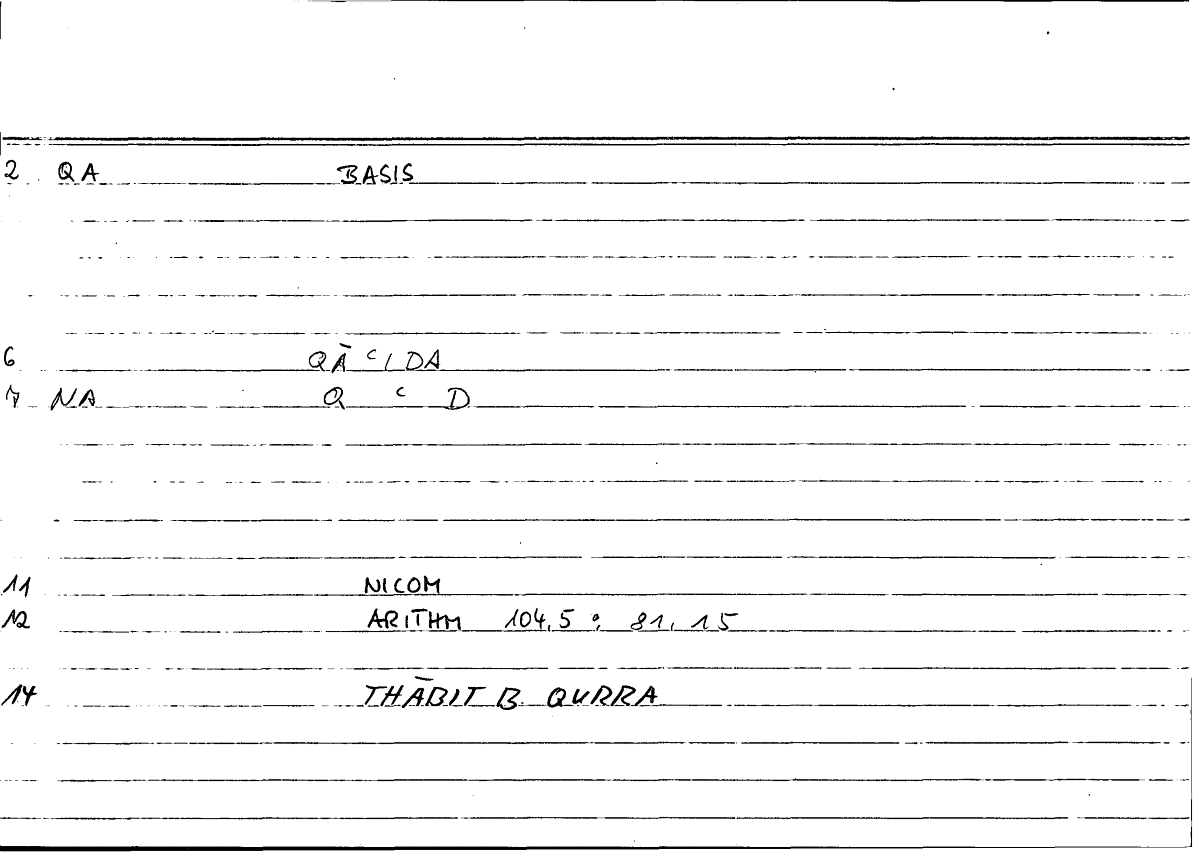 2 QA BASIS
6 QĀ ʿIDA
7 NA Q ʿ D
11 NICOM
12 ARITHM 104,5 ; 81, 15
14 THĀBIT B. QURRA